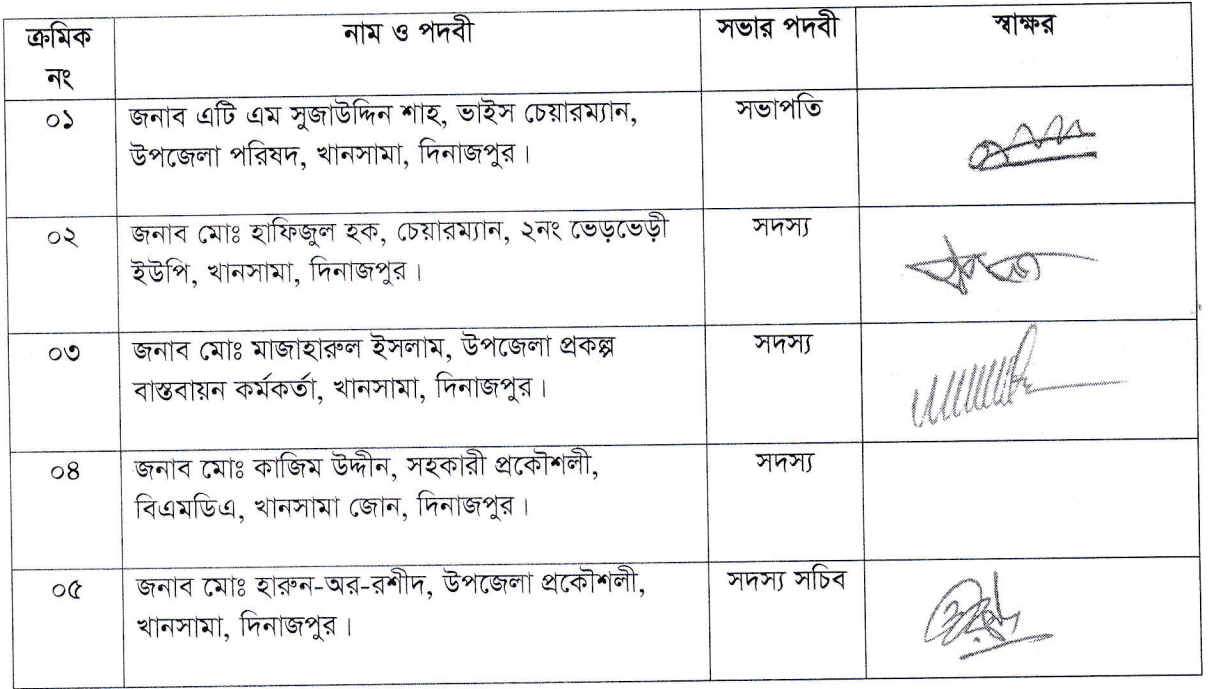 ক্রমিক নং	নাম ও পদবী	সভার পদবী	স্বাক্ষর
০১	জনাব এটি এম সুজাউদ্দিন শাহ, ভাইস চেয়ারম্যান,	সভাপতি
উপজেলা পরিষদ, খানসামা, দিনাজপুর।
০২	জনাব মোঃ হাফিজুল হক, চেয়ারম্যান, ২নং ভেড়ভেড়ী	সদস্য
ইউপি, খানসামা, দিনাজপুর।
০৩	জনাব মোঃ মাজাহারুল ইসলাম, উপজেলা প্রকল্প	সদস্য
বাস্তবায়ন কর্মকর্তা, খানসামা, দিনাজপুর।
০৪	জনাব মোঃ কাজিম উদ্দীন, সহকারী প্রকৌশলী,	সদস্য
বিএমডিএ, খানসামা জোন, দিনাজপুর।
০৫	জনাব মোঃ হারুন-অর-রশীদ, উপজেলা প্রকৌশলী,	সদস্য সচিব
খানসামা, দিনাজপুর।